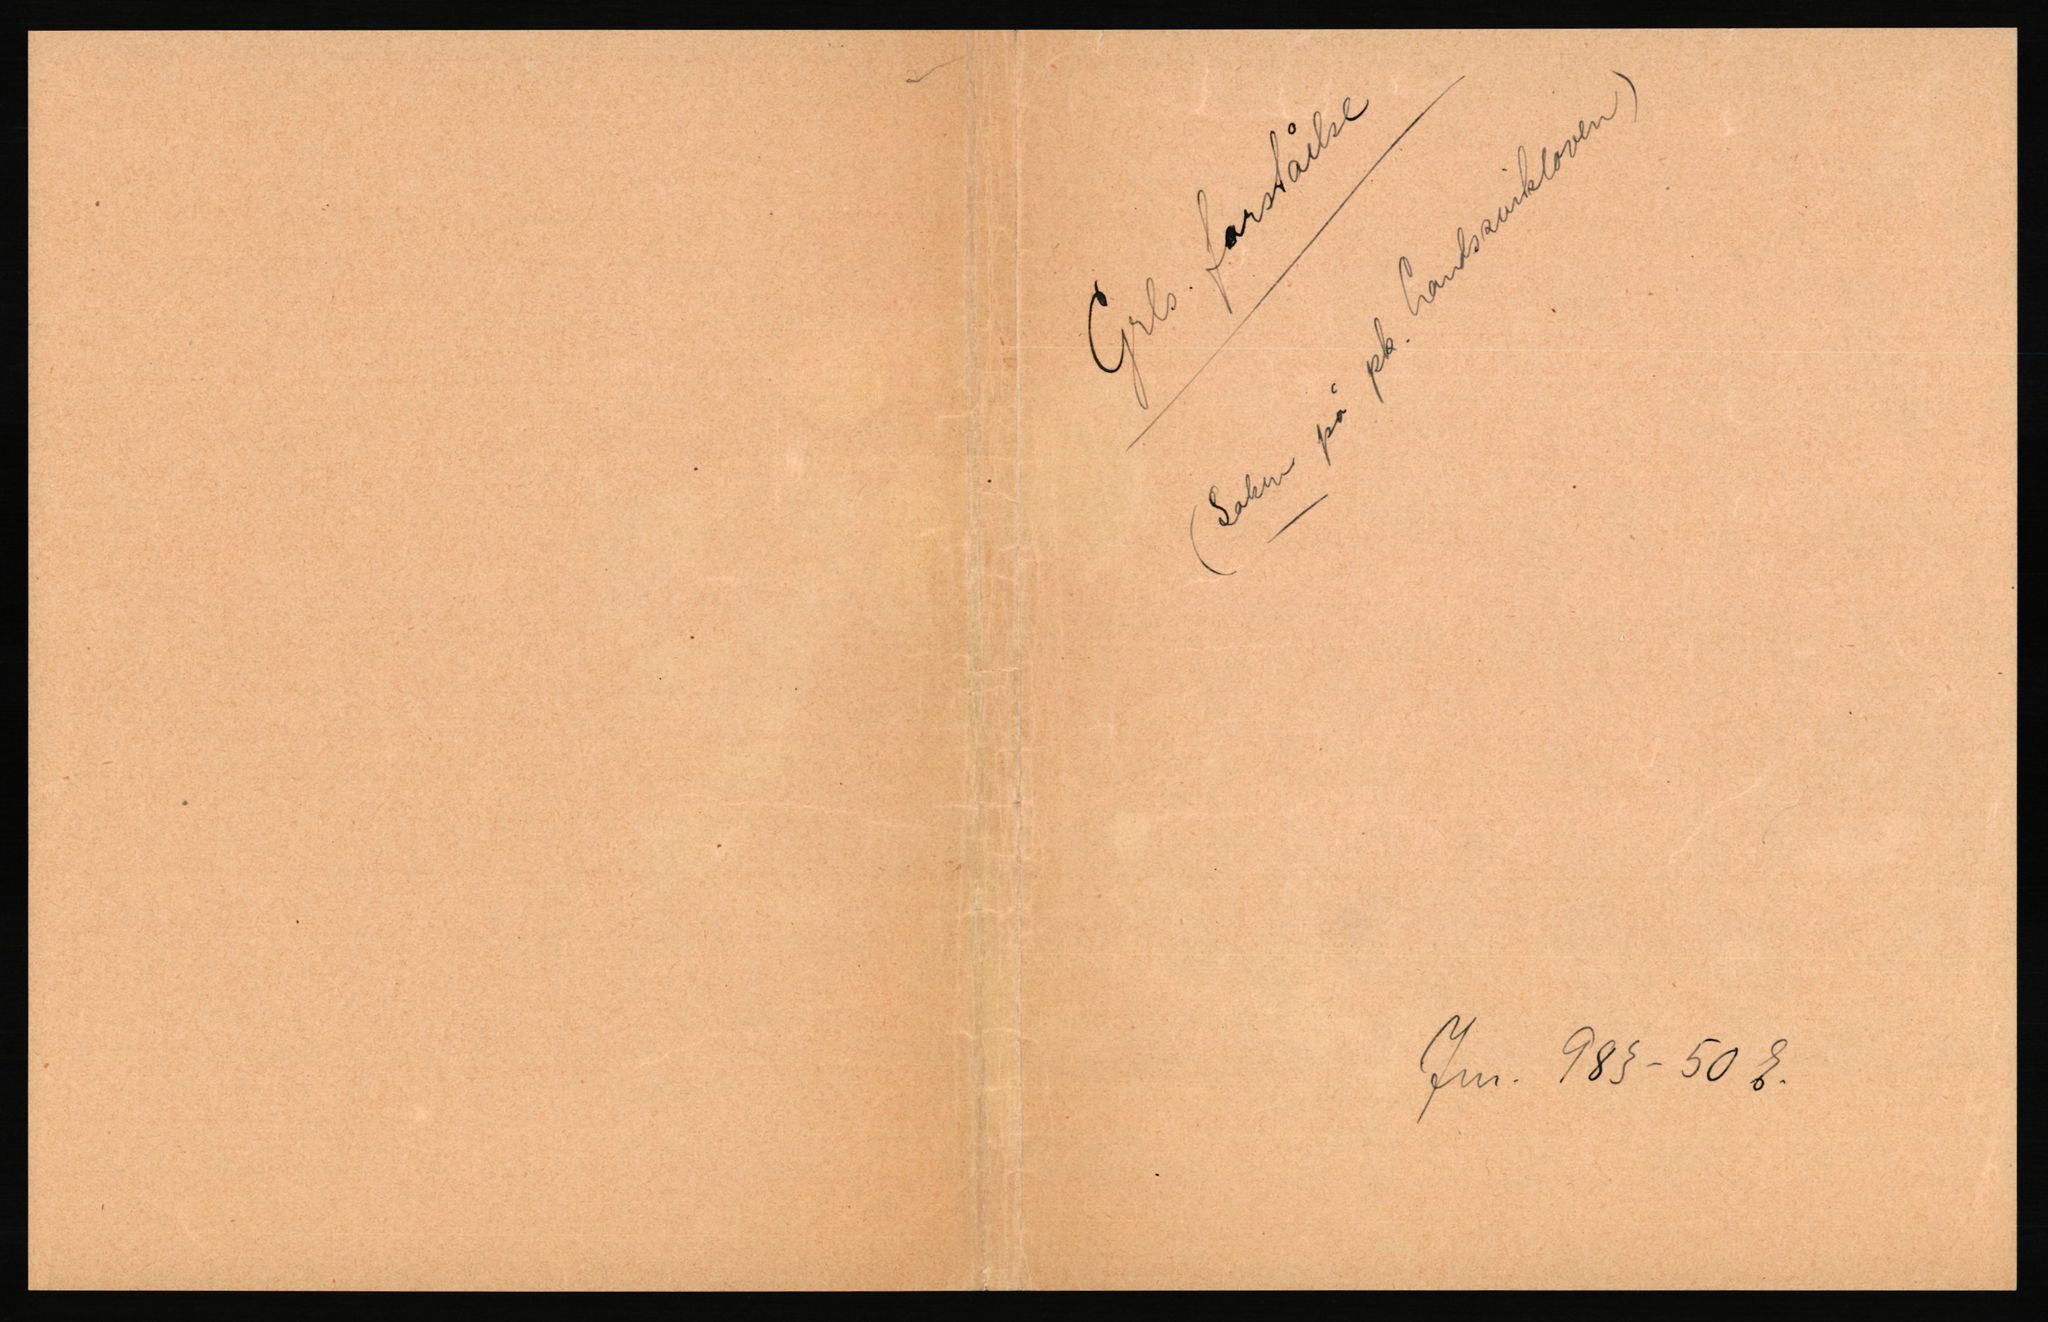 Grls. forståelse
(Saken på pk. Landssvikloven)
Jnr. 983-50 E.